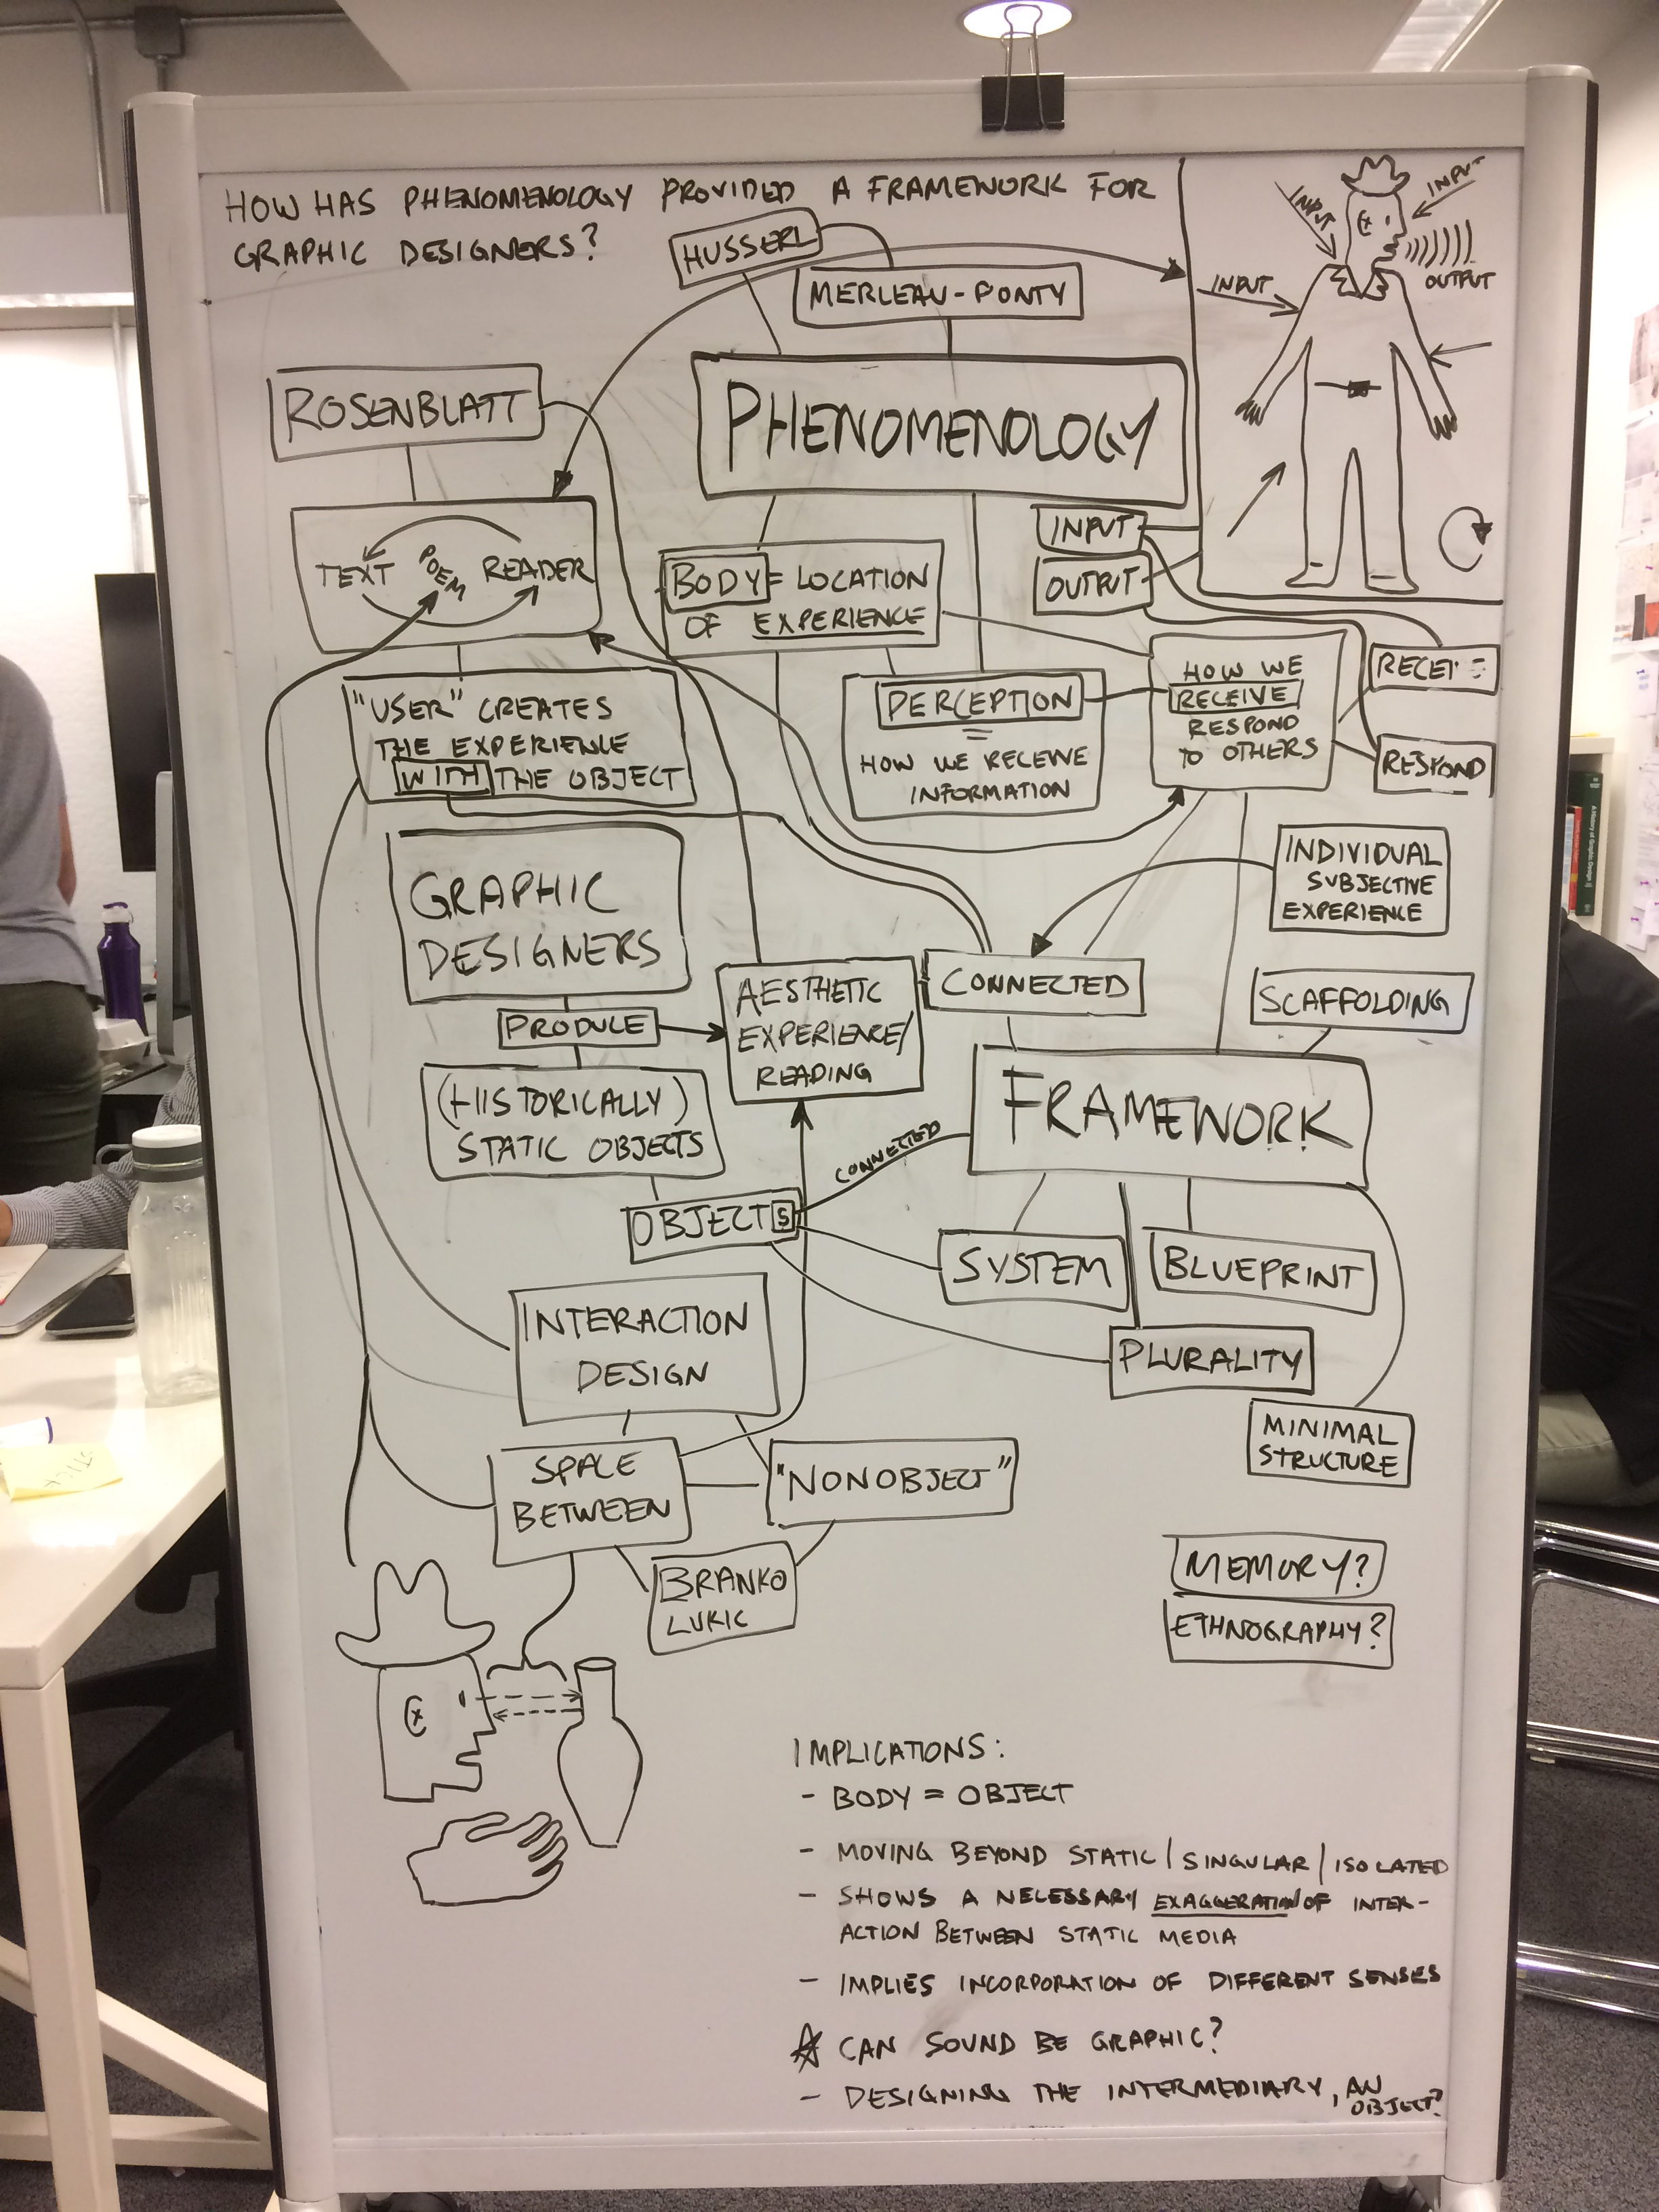 HOW HAS PHENOMENOLOGY PROVIDED A FRAMEWORK FOR
GRAPHIC DESIGNERS?
HUSSERL
MERLEAU-PONTY
INPUT
INPUT
INPUT
OUTPUT
ROSENBLATT
PHENOMENOLOGY
TEXT POEM READER
INPUT
OUTPUT
BODY = LOCATION
OF EXPERIENCE
"USER" CREATES
THE EXPERIENCE
WITH THE OBJECT
PERCEPTION
=
HOW WE RECEIVE
INFORMATION
HOW WE
RECEIVE
RESPOND
TO OTHERS
RESPOND
GRAPHIC
DESIGNERS
INDIVIDUAL
SUBJECTIVE
EXPERIENCE
PRODUCE
AESTHETIC
EXPERIENCE/
READING
CONNECTED
SCAFFOLDING
(HISTORICALLY)
STATIC OBJECTS
FRAMEWORK
CONNECTED
OBJECTS
SYSTEM
BLUEPRINT
PLURALITY
MINIMAL
STRUCTURE
INTERACTION
DESIGN
SPACE
BETWEEN
"NONOBJECT"
BRANKO
LUKIC
MEMORY?
ETHNOGRAPHY?
IMPLICATIONS:
- BODY = OBJECT
- MOVING BEYOND STATIC/SINGULAR/ISOLATED
- SHOWS A NECESSARY EXAGGERATION OF INTER-
ACTION BETWEEN STATIC MEDIA
- IMPLIES INCORPORATION OF DIFFERENT SENSES
☆ CAN SOUND BE GRAPHIC?
- DESIGNING THE INTERMEDIARY, AN
OBJECT?